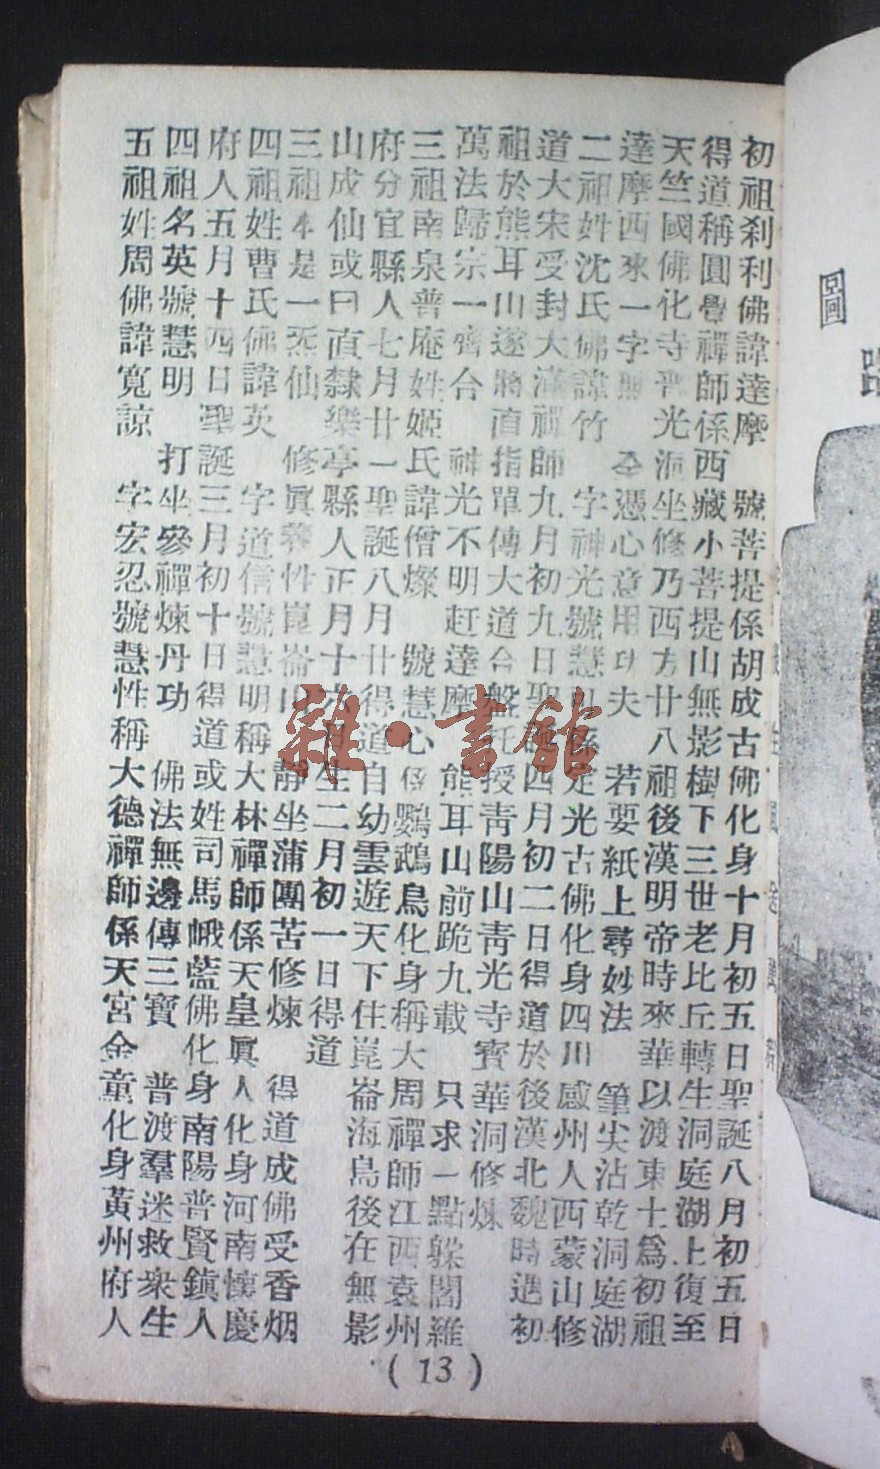 初祖刹利佛諱達摩　號菩提係胡成古佛化身十月初五日聖誕八月初五日
得道稱圓覺禪師係西藏小菩提山無影樹下三世老比丘轉生洞庭湖上復至
天竺國佛化寺晋光洞坐修乃西方廿八祖後漢明帝時來華以渡東土爲初祖
達摩西來一字無　全憑心意用功夫　若要紙上尋妙法　筆尖沾乾洞庭湖
二祖姓沈氏佛諱竹　字神光號慧可係定光古佛化身四川感州人西蒙山修
道大宋受封大滿禪師九月初九日聖誕四月初二日得道於後漢北魏時遇初
祖於熊耳山遂將直指單傳大道合盤托授靑陽山靑光寺寶華洞修煉
萬法歸宗一齊合　神光不明赶達摩　熊耳山前跪九載　只求一點躱閻羅
三祖南泉普庵姓姬氏諱僧燦　號慧心係鸚鵡鳥化身稱大周禪師江西袁州
府分宜縣人七月廿一聖誕八月廿得道自幼雲遊天下住崑崙海島後在無影
山成仙或曰直隸樂亭縣人正月十六月生二月初一日得道
三祖本是一炁仙　修眞養性崑崙山　靜坐蒲團苦修煉　得道成佛受香烟
四祖姓曹氏佛諱英　字道信號慧明稱大林禪師係天皇眞人化身河南懷慶
府人五月十四日聖誕三月初十日得道或姓司馬峨藍佛化身南陽普賢鎭人
四祖名英號慧明　打坐參禪煉丹功　佛法無邊傳三寶　普渡羣迷救衆生
五祖姓周佛諱寬諒　字宏忍號慧性稱大德禪師係天宮金童化身黃州府人
(13)
圖
雜·書館